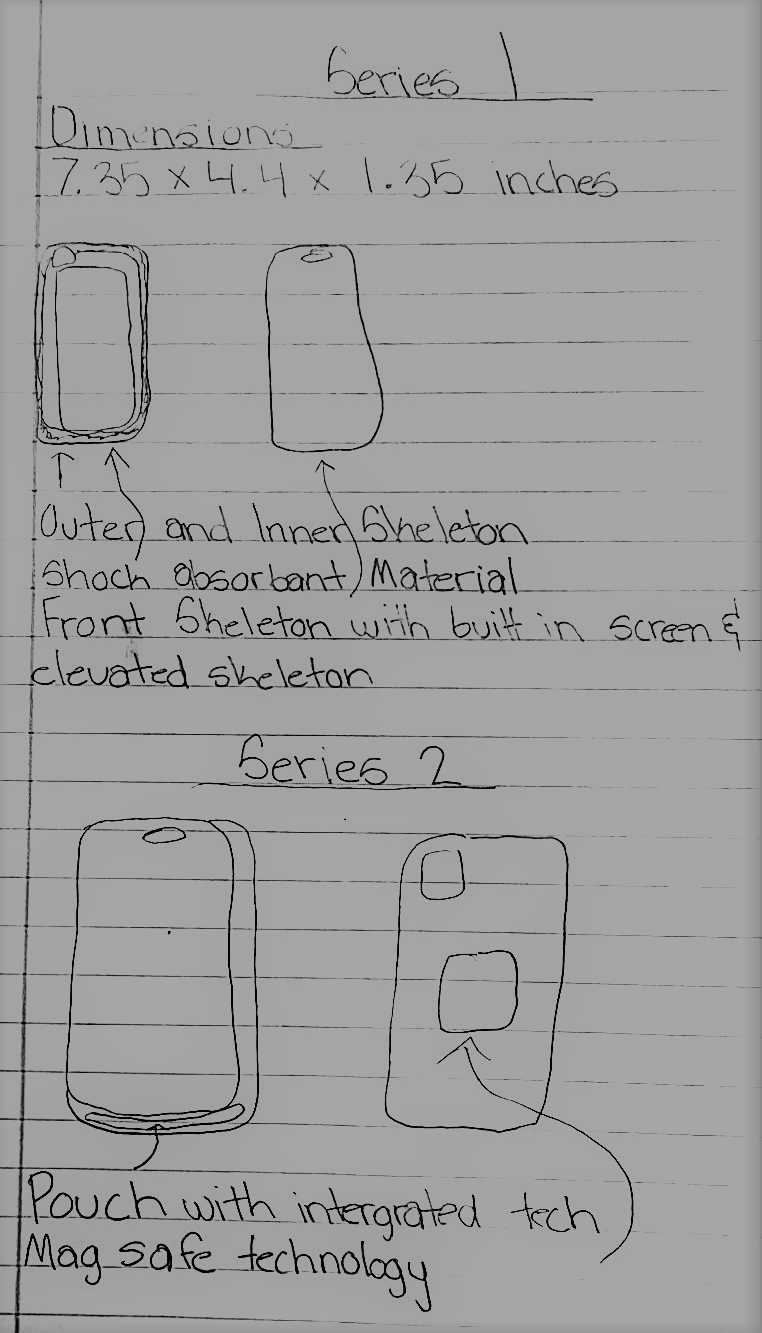 Series 1
Dimensions
7.35 x 4.4 x 1.35 inches
Outer and Inner Skeleton
Shock absorbant Material
Front Skeleton with built in screen &
elevated skeleton
Series 2
Pouch with intergrated tech
Mag safe technology